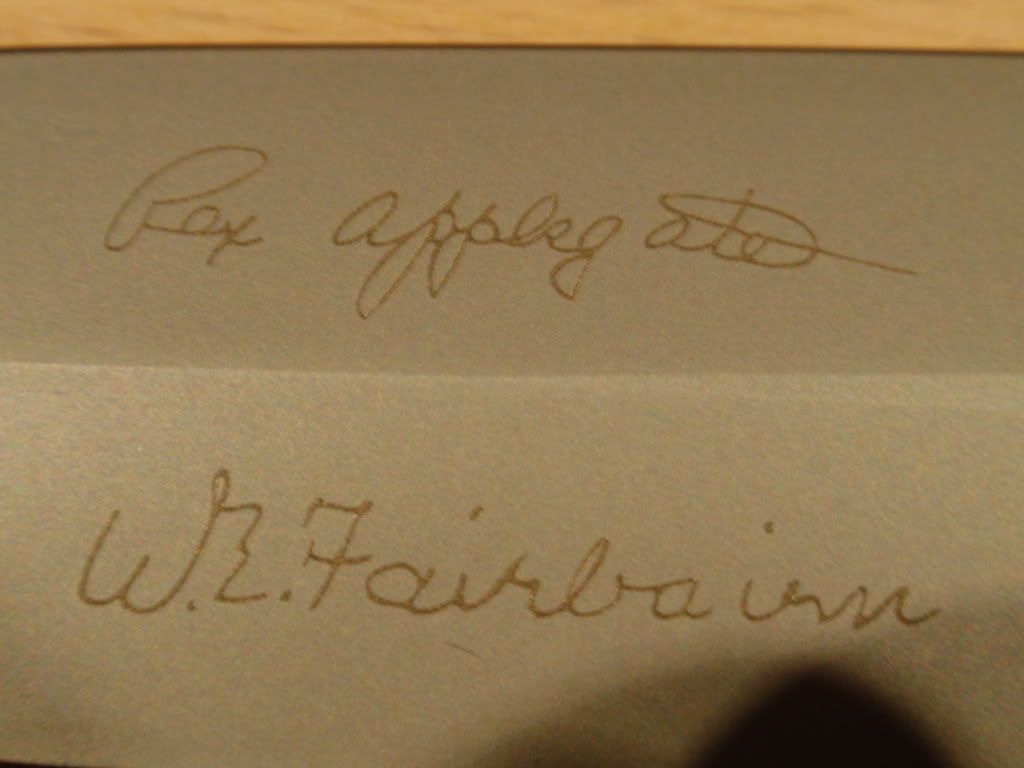 Rex Applegate
W.E. Fairbairn